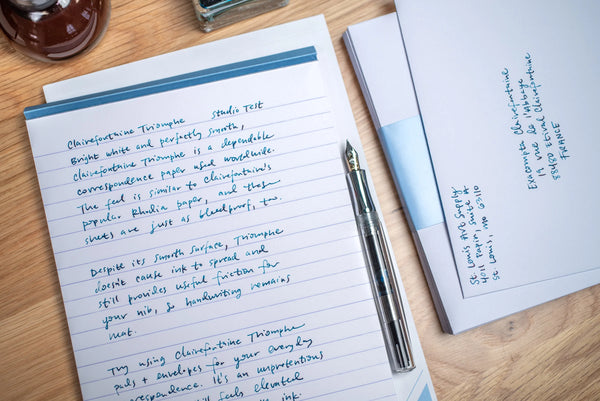 Clairefontaine Triomphe Studio Test
Bright white and perfectly smooth,
Clairefontaine Triomphe is a dependable
correspondence paper used worldwide.
The feel is similar to Clairefontaine's
popular Rhodia paper, and these
sheets are just as bleedproof, too.
Despite its smooth surface, Triomphe
doesn't cause ink to spread and
still provides useful friction for
your nib, so handwriting remains
neat.
Try using Clairefontaine Triomphe
pads + envelopes for your everyday
correspondence. It's an unpretentious
feels elevated
ink.
St Louis Art Supply
4011 Papin, Suite A
St Louis, MO 63110
Exacompta Clairefontaine
19 rue de l'Abbaye
88480 Etival Clairefontaine
FRANCE